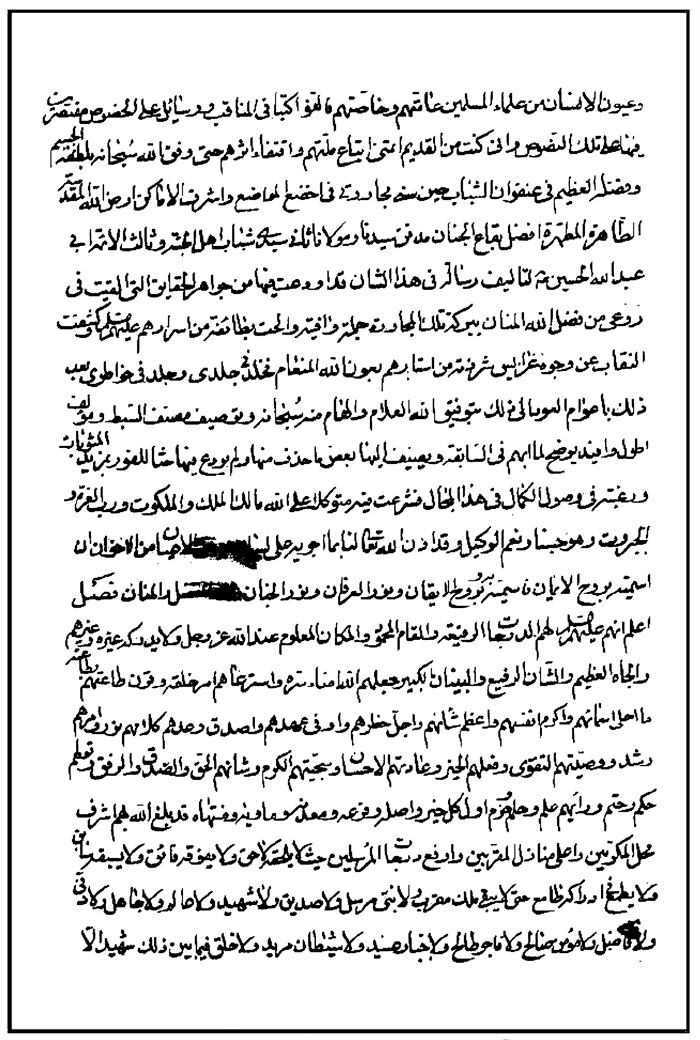 وعيون الانسان من علماء المسلمين عامّتهم وخاصّتهم فالّفوا كتبا في المناقب ورسائل على الخصوص مقتصرين
فيها على تلك النصوص وانى كنت من القديم اتمنى اتباع ملّتهم واقتفاء اثرهم حتى وفق الله سبحانه بلطفه الجسيم
وفضله العظيم في عنفوان الشباب حين سنه مجاورتى في اخضع المواضع واشرف الاماكن ارض الله المقدّسة
الطاهرة المطهرة افضل بقاع الجنان مدفن سيدنا ومولانا ثانى سيدى شباب اهل الجنة وثالث الائمة ابى
عبد الله الحسين لتاليف رسالة في هذا الشان قد اودعت فيها من جواهر الحقايق التى القيت فى
روعى من فضل الله المنان ببركة تلك المجاورة جملة وافية والحت بطائفة من اسرارهم عليهم وكشفت
النقاب عن وجوه عرايس شرذمة من استارهم بعون الله المنعام فخلد في جلدى وجلد في خواطرى بعد
ذلك باعوام العود الى ذلك بتوفيق الله العلام والهام منه سبحانه وبتوصيف مصنف البسط ومؤلف
اطول وافيد يوضح لما ابهم في السابقة ويضيف اليها بعض ما حذف منها ولم يودع فيها حثا للفوز بمزيد المثوبات
ورغبة في وصول الكمال في هذا المجال فشرعت فيه متوكلا على الله مالك الملك والملكوت ورب العزة و
الجبروت وهو حسبنا ونعم الوكيل وقد اذن الله تعالى لنا بما اجرى به على من الاخوان ان
اسميته بروح الايمان فاسميته بروح الايقان ونور العرفان ونور الجنان والمنان فصل
اعلم انهم عليهم لهم الدرجات الرفيعة والمقام المحمود والمكان المعلوم عند الله عز وجل ولا يدركه غيره وغيرهم
والجاه العظيم والشان الرفيع والبنيان الكبير جعلهم الله منارة واسترعاهم امر خلقه وقرن طاعتهم بطاعته
ما احلى اسمائهم واكرم انفسهم واعظم شانهم واجل خطرهم واوفى عهدهم واصدق وعدهم كلامهم نور وامرهم
رشد ووصيتهم التقوى وفعلهم الخير وعادتهم الاحسان وسجيتهم الكرم وشانهم الحق والصدق والرفق وقولهم
حكم وحتم ورأيهم علم وحلم وحزم اول كل خير واصله وفرعه ومعدنه وماويه ومنتهاه قد بلغ الله بهم اشرف
محل المكرمين واعلى منازل المقربين وارفع درجات المرسلين حيث لا يلحقه لاحق ولا يفوقه فائق ولا يسبقه سابق
ولا يطمع في ادراكه طامع حتى لا يبقى ملك مقرب ولا نبى مرسل ولا صديق ولا شهيد ولا عالم ولا جاهل ولا دنى
ولا فاضل ولا مؤمن صالح ولا فاجر طالح ولا جبار عنيد ولا شيطان مريد ولا خلق فيما بين ذلك شهيد الا